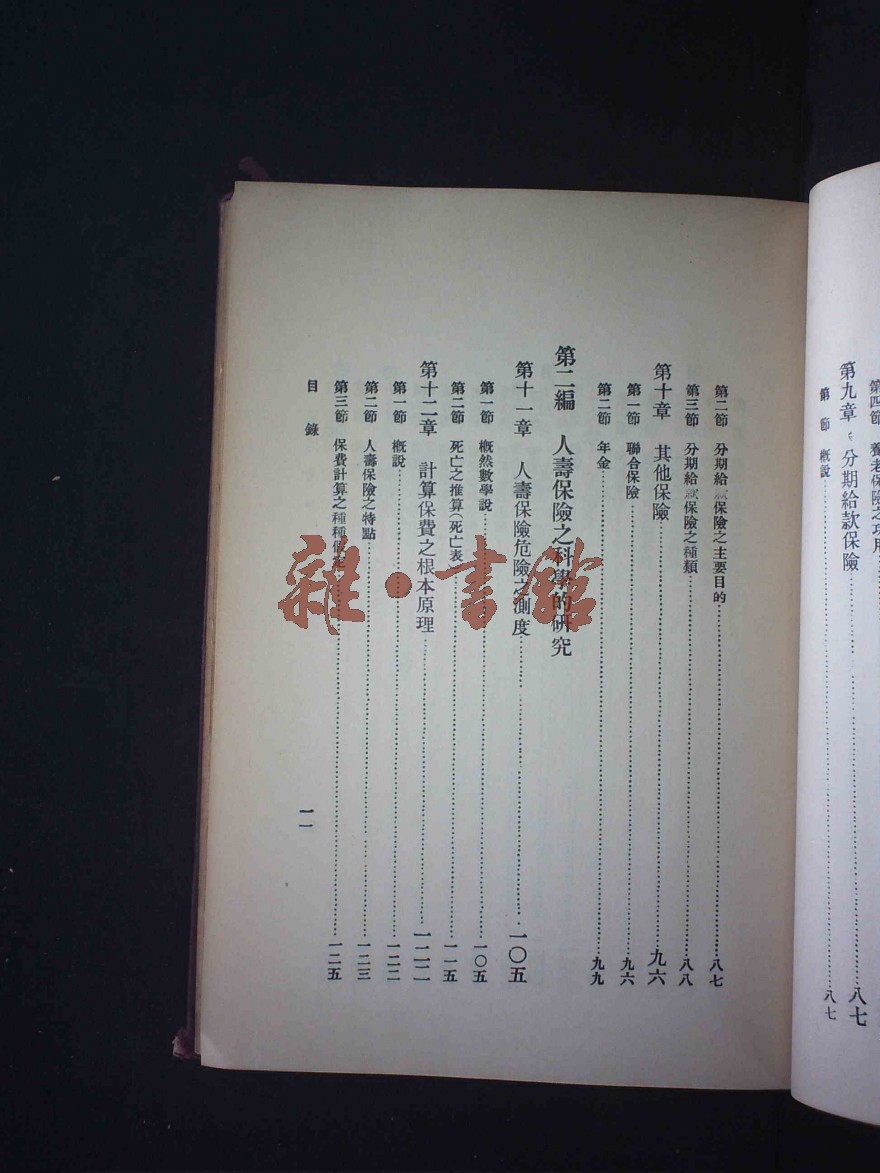 第四節 養老保險之功用
第九章 分期給款保險……八七
第 節 概說……八七
第二節 分期給款保險之主要目的……八七
第三節 分期給款保險之種類……八八
第十章 其他保險……九六
第一節 聯合保險……九六
第二節 年金……九九
第二編 人壽保險之科學的研究
第十一章 人壽保險危險之測度……一〇五
第一節 概然數學說……一〇五
第二節 死亡之推算(死亡表……一一五
第十二章 計算保費之根本原理……一二二
第一節 概說……一二二
第二節 人壽保險之特點……一二三
第三節 保費計算之種種假定……一二五
目錄
雜·書館